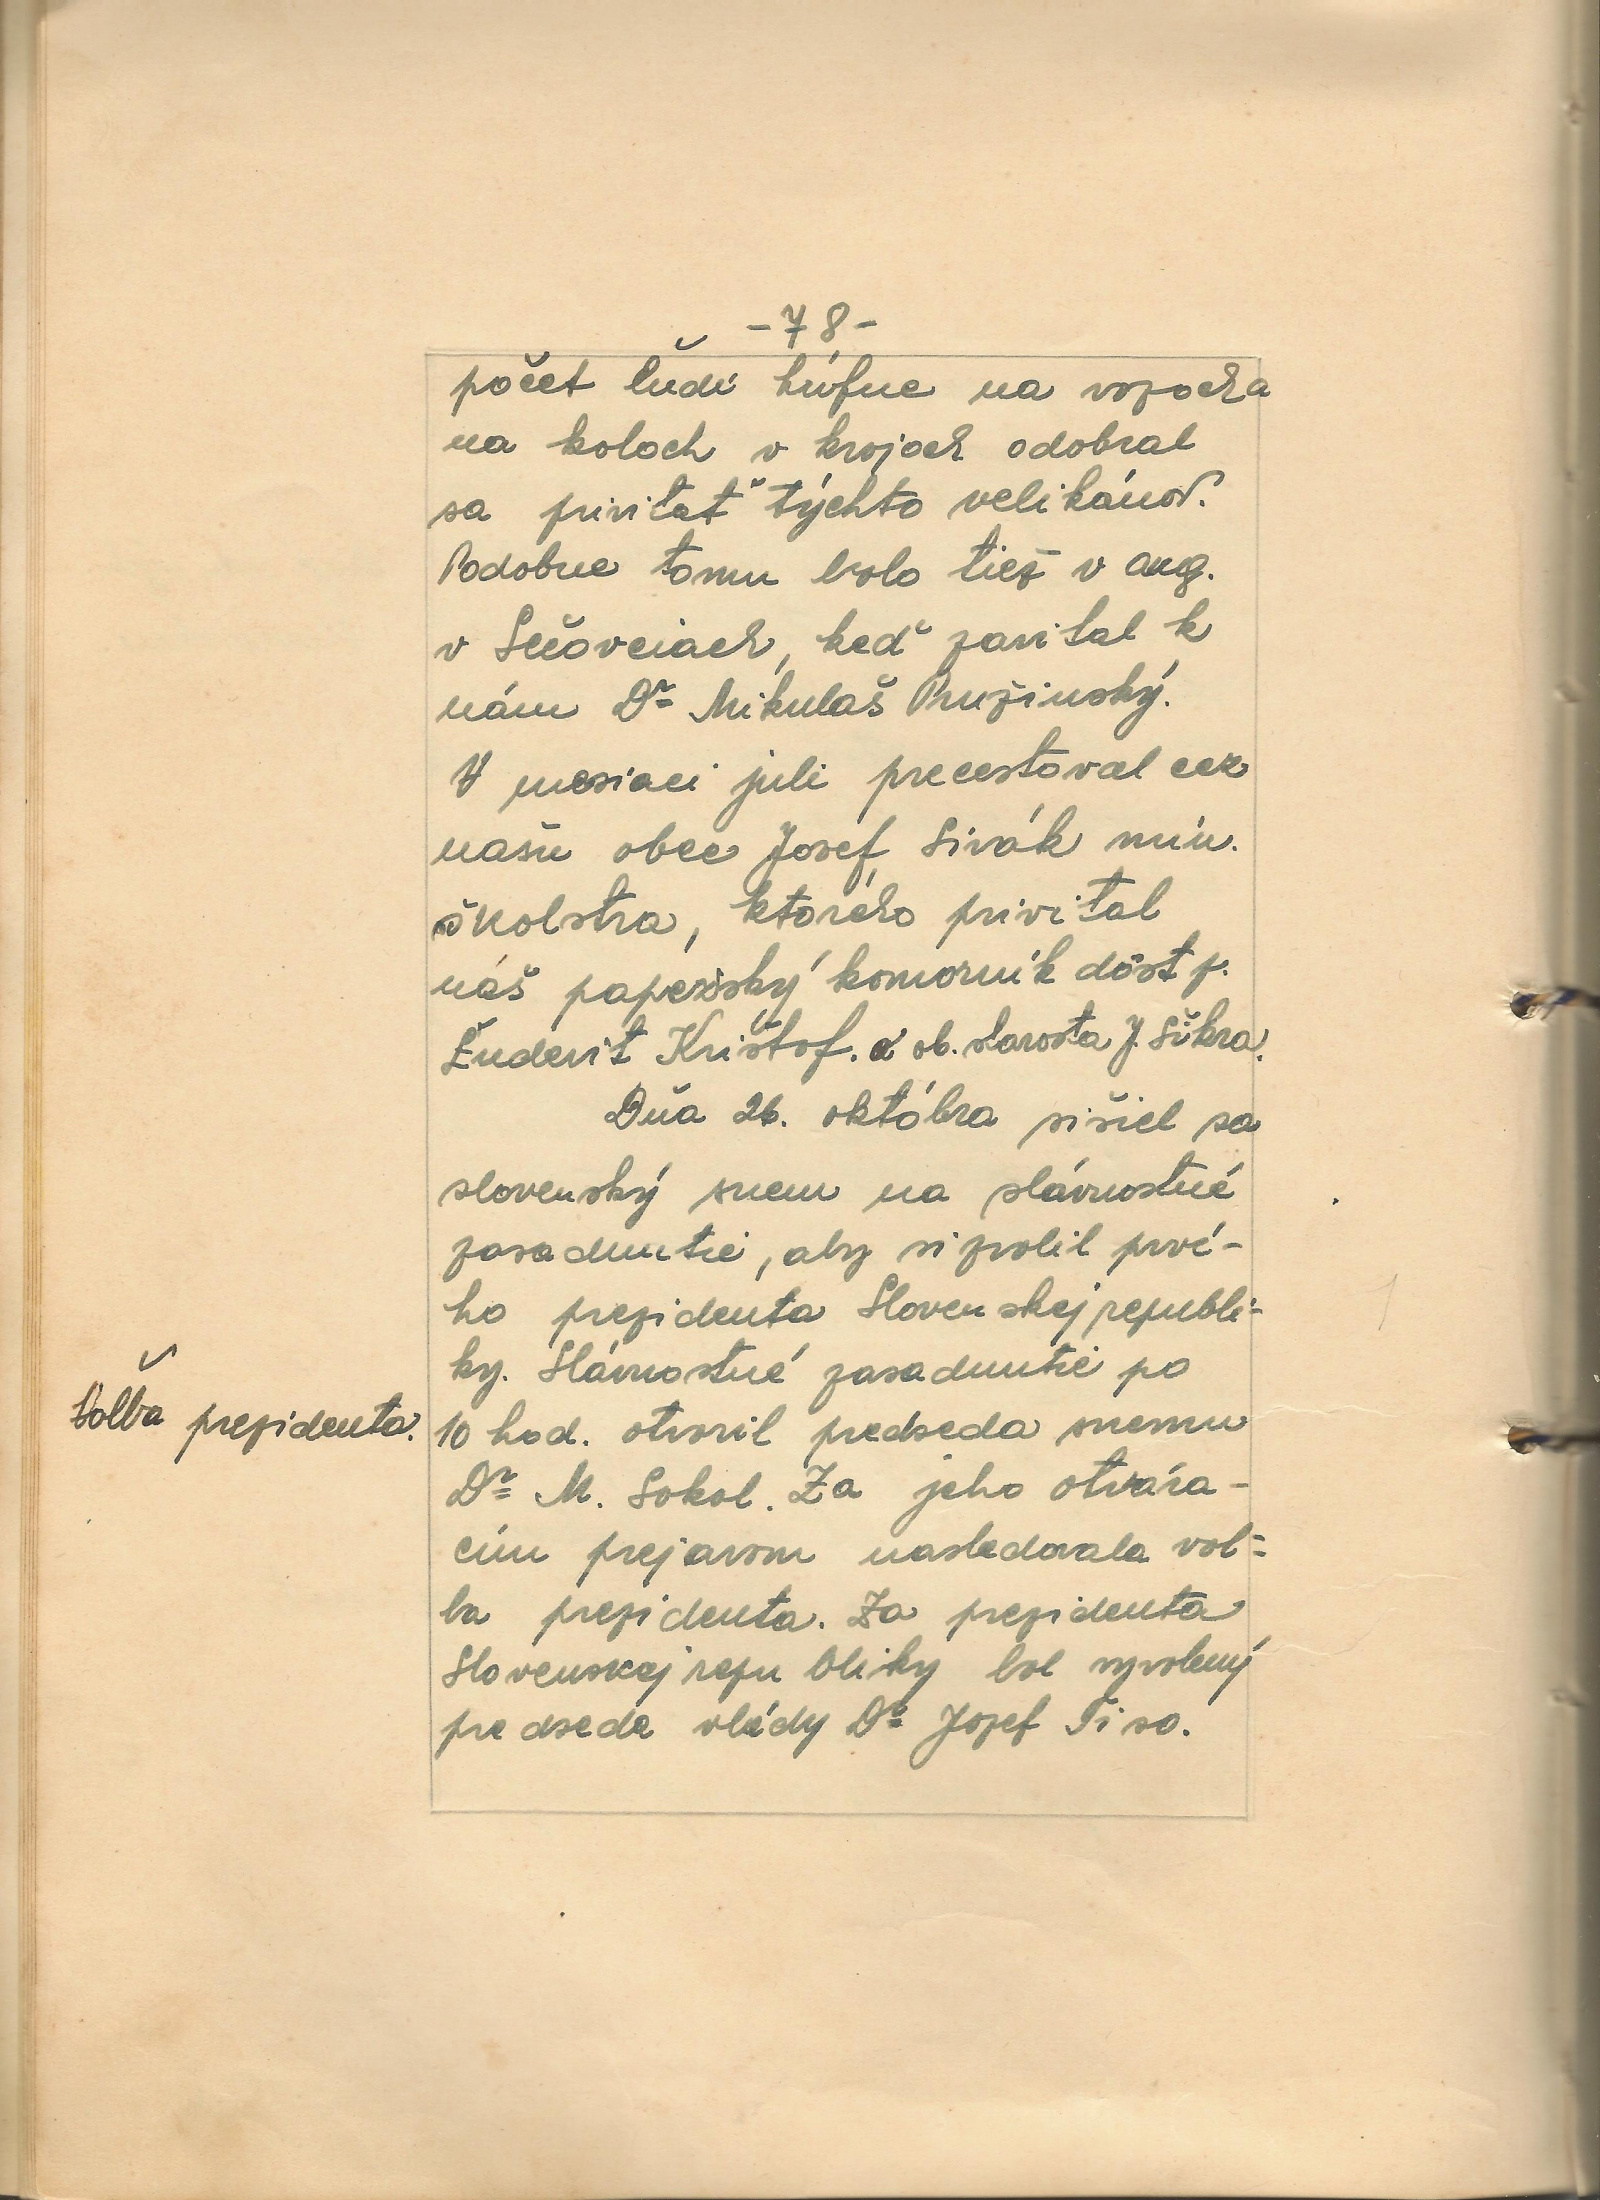 -78-
počet ľudí húfne na vozoch a
na koloch v krojoch odobral
sa privítať týchto velikánov.
Podobne tomu bolo tiež v aug.
v Sečovciach, keď zavítal k
nám Dr Mikuláš Pružinský.
V mesiaci juli precestoval cez
našu obec Josef Sivák min.
školstva, ktorého privítal
náš papežský komorník dôst p.
Ľudevit Krištof. a ob. starosta J. Sikra.
Dňa 26. októbra sišiel sa
slovenský snem na slávnostné
zasadnutie, aby si zvolil prvé-
ho prezidenta Slovenskej republi-
ky. Slávnostné zasadnutie po
Voľba prezidenta.
10 hod. otvoril predseda snemu
Dr M. Sokol. Za jeho otvára-
cím prejavom nasledovala vol-
ba prezidenta. Za prezidenta
Slovenskej republiky bol vyvolený
predseda vlády Dr Jozef Tiso.